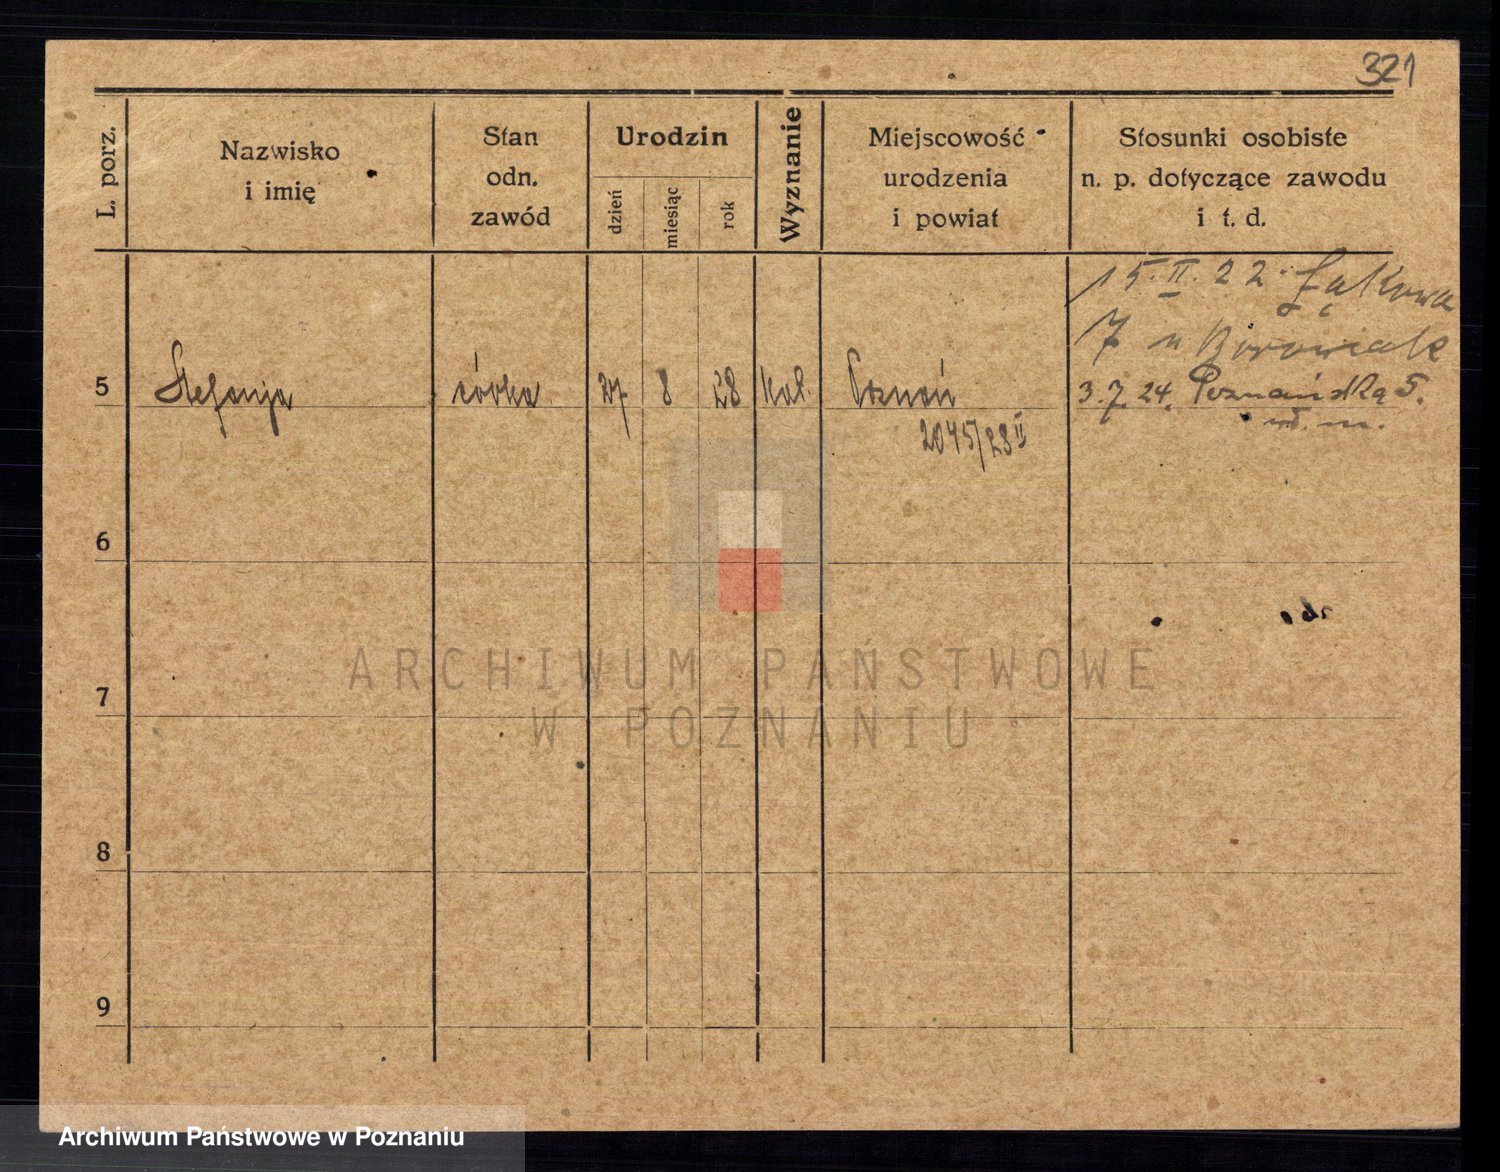 321
L. porz.
Nazwisko
i imię
Stan
odn.
zawód
Urodzin
dzień
miesiąc
rok
Wyznanie
Miejscowość
urodzenia
i powiat
Stosunki osobiste
n. p. dotyczące zawodu
i t. d.
15.II.22. Łąkowa
7 u Borowiak
5 Stefanja córka 27 8 28 kat. Poznań 3.7.24. Poznańska 5.
2045/28 II
6
7
8
9
ARCHIWUM PAŃSTWOWE
W POZNANIU
Archiwum Państwowe w Poznaniu